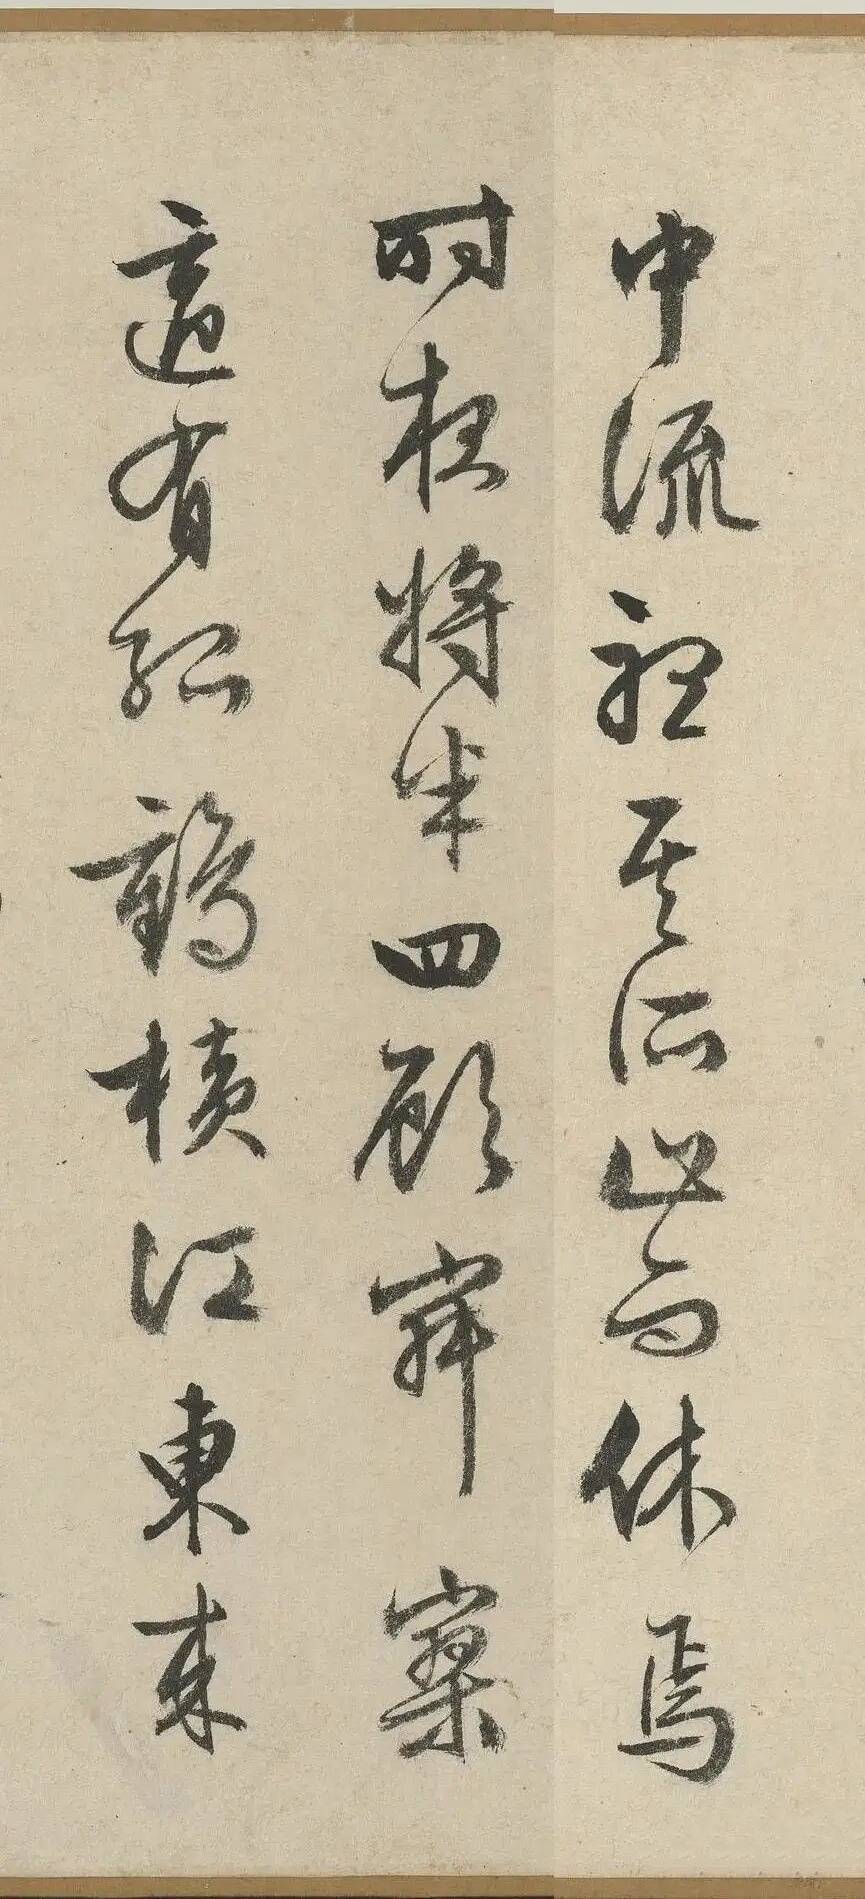 中流聽其所止而休焉
時夜將半四顧寂寥
適有孤鶴橫江東來